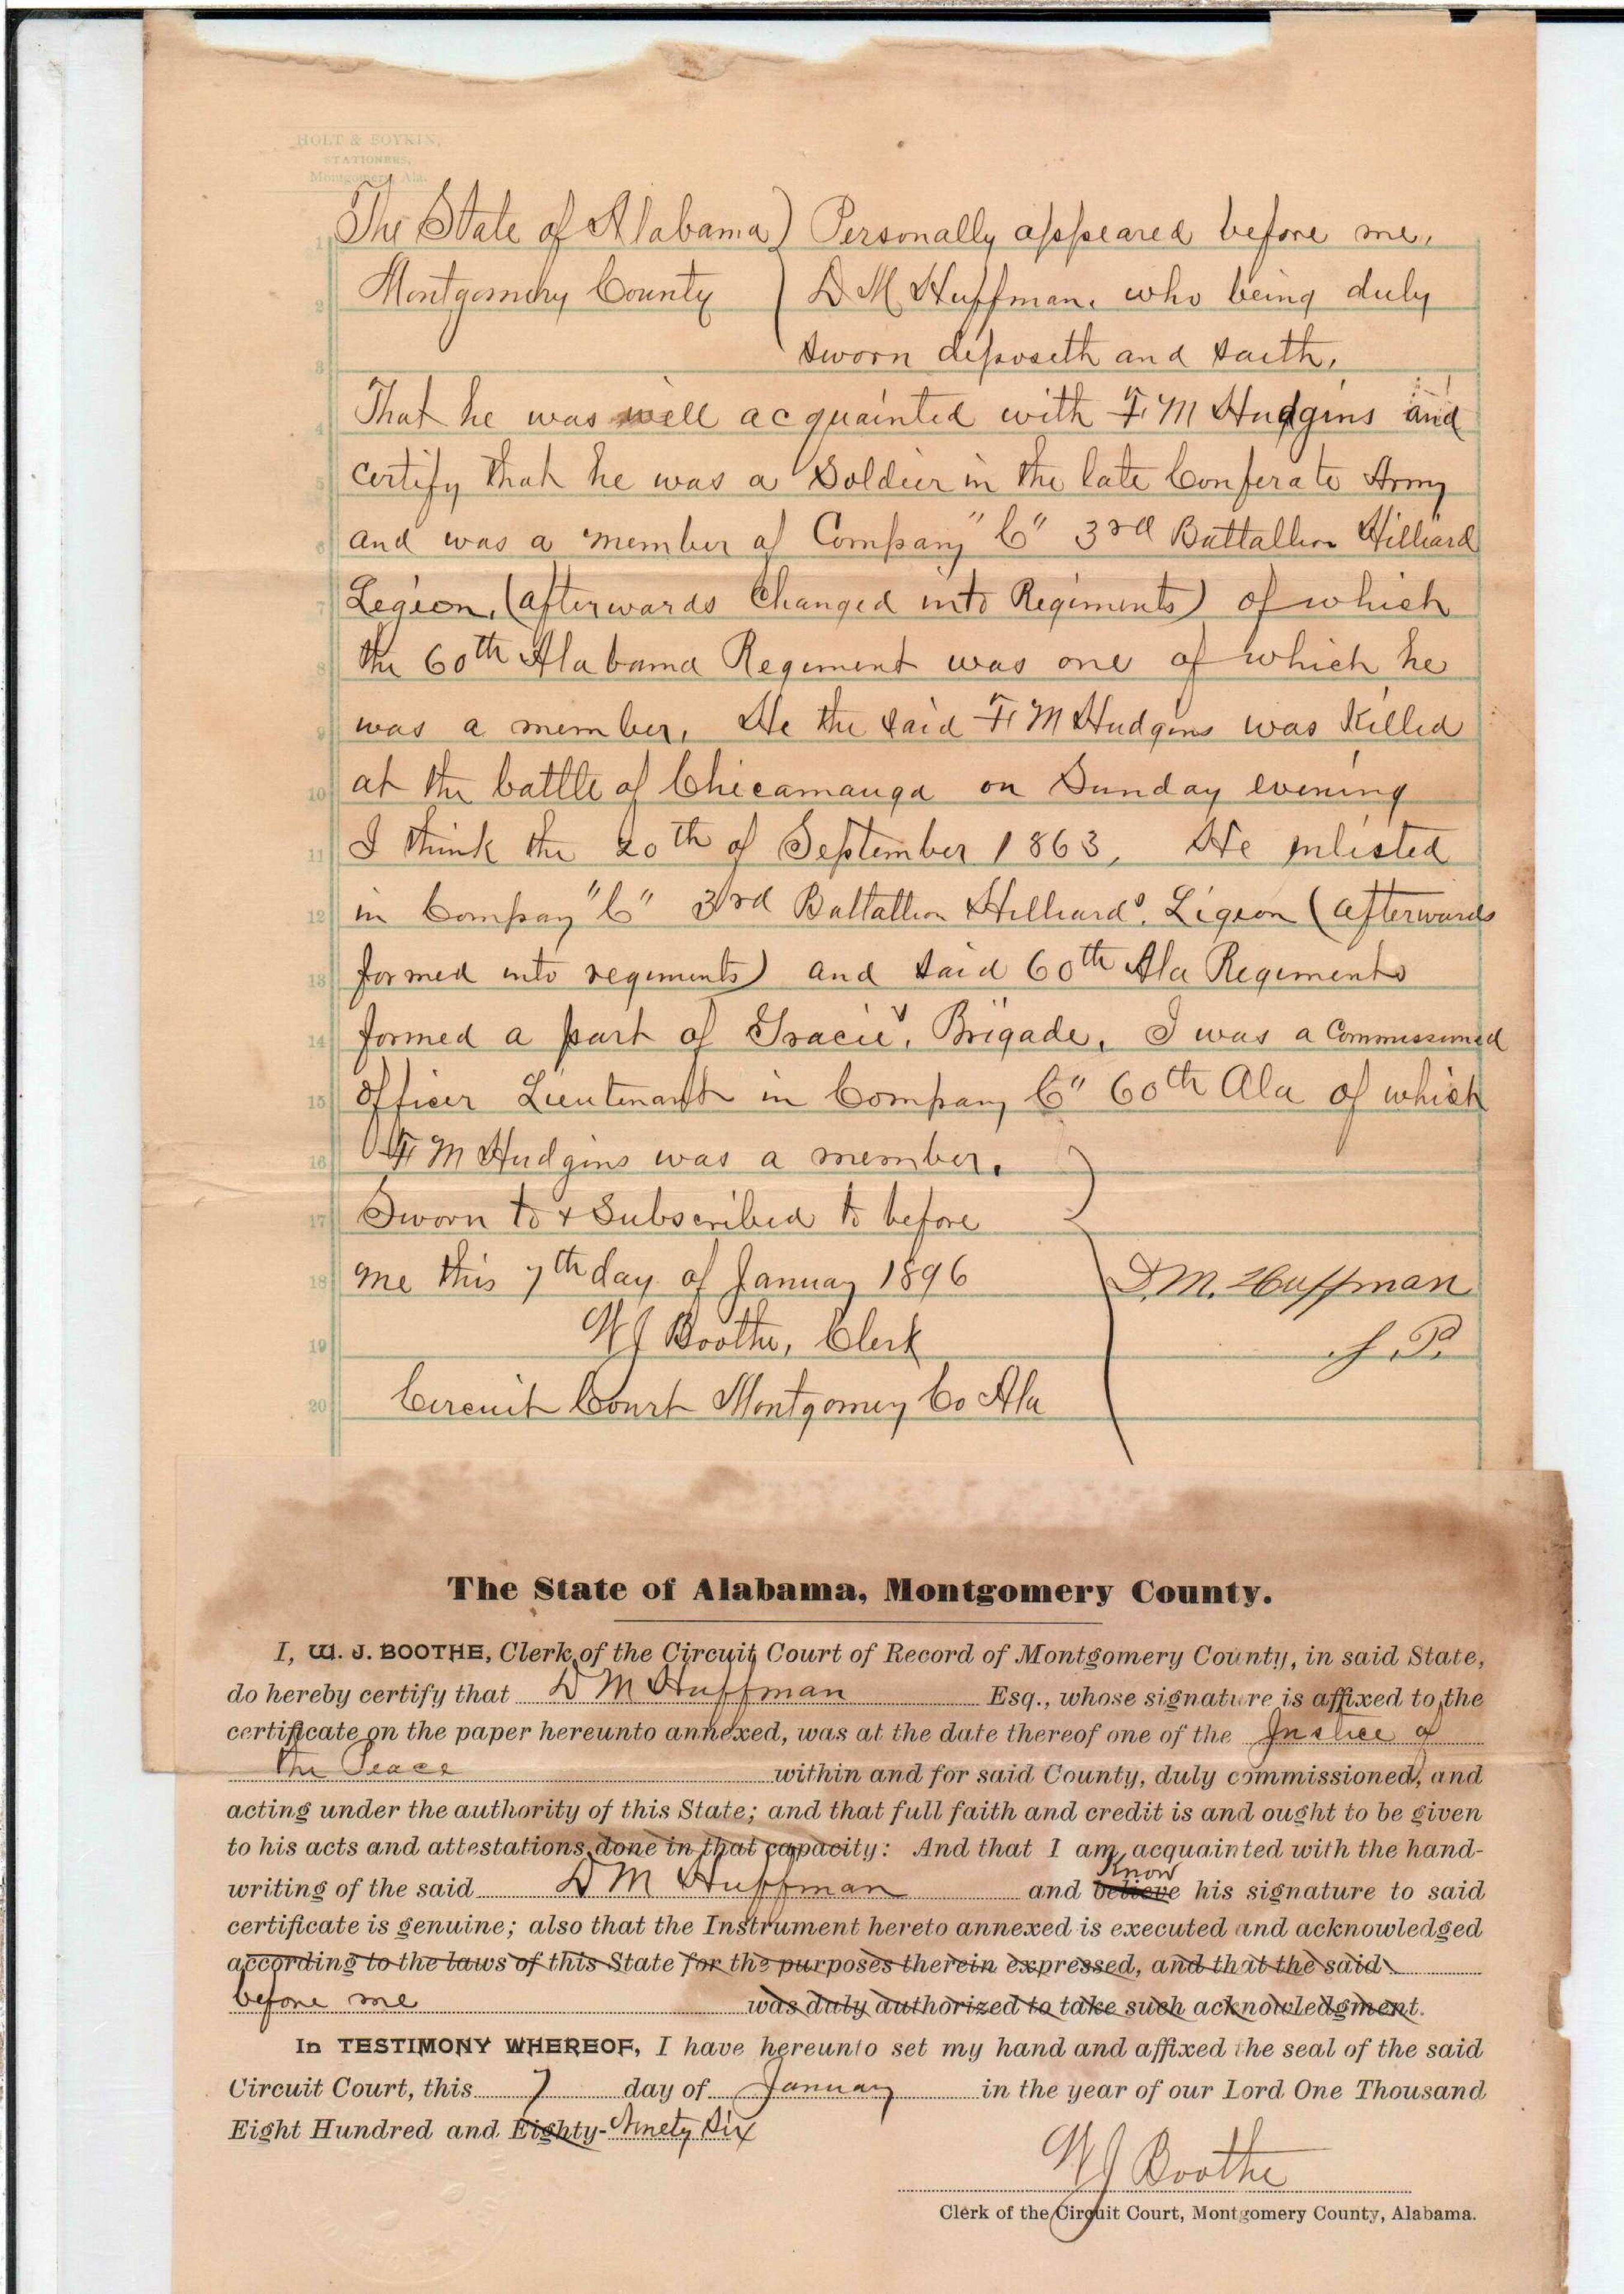 HOLT & BOYKIN,
STATIONERS,
Montgomery, Ala.
1 The State of Alabama) Personally appeared before me,
2 Montgomery County ) D M Huffman, who being duly
3 sworn deposeth and saith,
4 That he was well acquainted with F. M Hudgins and
5 certify that he was a Soldier in the late Conferate Army
6 and was a member of Company "C" 3rd Battallion Hilliard
7 Legion, (afterwards Changed into Regiments) of which
8 the 60th Alabama Regiment was one of which he
9 was a member, He the said F. M Hudgins was Killed
10 at the battle of Chicamauga on Sunday evening
11 I think the 20th of September 1863, He enlisted
12 in Company "C" 3rd Battallion Hilliards. Legion (afterwards
13 formed into regiments) and said 60th Ala Regiments
14 formed a part of Gracie's Brigade, I was a Commissioned
15 officer Lieutenant in Company C" 60th Ala of which
16 F. M Hudgins was a member.
17 Sworn to & Subscribed to before
18 me this 7th day of January 1896 D. M. Huffman
19 W J Boothe, Clerk J. P.
20 Circuit Court Montgomery Co Ala
The State of Alabama, Montgomery County.
I, W. J. BOOTHE, Clerk of the Circuit Court of Record of Montgomery County, in said State,
do hereby certify that D M Huffman Esq., whose signature is affixed to the
certificate on the paper hereunto annexed, was at the date thereof one of the Justice of
the Peace within and for said County, duly commissioned, and
acting under the authority of this State; and that full faith and credit is and ought to be given
to his acts and attestations done in that capacity: And that I am acquainted with the hand-
Know
writing of the said D M Huffman and believe his signature to said
certificate is genuine; also that the Instrument hereto annexed is executed and acknowledged
according to the laws of this State for the purposes therein expressed, and that the said
before me was duly authorized to take such acknowledgment.
In TESTIMONY WHEREOF, I have hereunto set my hand and affixed the seal of the said
Circuit Court, this 7 day of January in the year of our Lord One Thousand
Eight Hundred and Eighty- Ninety Six
W J Boothe
Clerk of the Circuit Court, Montgomery County, Alabama.